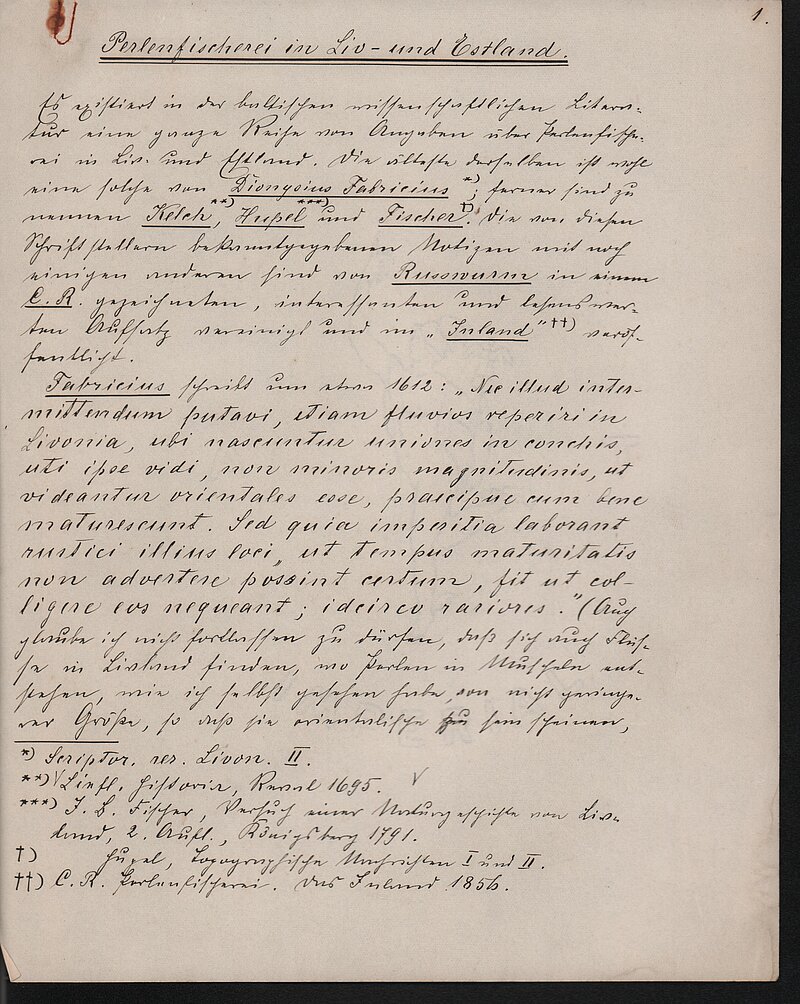 1.
Perlenfischerei in Liv- und Estland.
Es existiert in der baltischen wissenschaftlichen Litera-
tur eine ganze Reihe von Angaben über Perlenfische-
rei in Liv- und Estland. Die älteste derselben ist wohl
eine solche von Dionysius Fabricius *); ferner sind zu
nennen Kelch **), Hupel ***) und Fischer †). Die von diesen
Schriftstellern bekanntgegebenen Notizen mit noch
einigen anderen sind von Russwurm in einem
C. R. gezeichneten, interessanten und lesenswer-
ten Aufsatz vereinigt und im „Inland" ††) veröf-
fentlicht.
Fabricius schreibt um etwa 1612: „Nec illud inter-
mittendum putavi, etiam fluvios reperiri in
Livonia, ubi nascuntur uniones in conchis,
uti ipse vidi, non minoris magnitudinis, ut
videantur orientales esse, praecipue cum bene
maturescunt. Sed quia imperitia laborant
rustici illius loci, ut tempus maturitatis
non advertere possint certum, fit ut col-
ligere eos nequeant; idcirco rariores." (Auch
glaube ich nicht fortlassen zu dürfen, daß sich auch Flüs-
se in Livland finden, wo Perlen in Muscheln ent-
stehen, wie ich selbst gesehen habe, von nicht geringe-
rer Größe, so daß sie orientalische zu sein scheinen,
*) Scriptor. rer. Livon. II.
**) Liefl. Historia, Reval 1695.
***) J. B. Fischer, Versuch einer Naturgeschichte von Liv-
land, 2. Aufl., Königsberg 1791.
†) Hupel, Topographische Nachrichten I und II.
††) C. R. Perlenfischerei. Das Inland 1856.